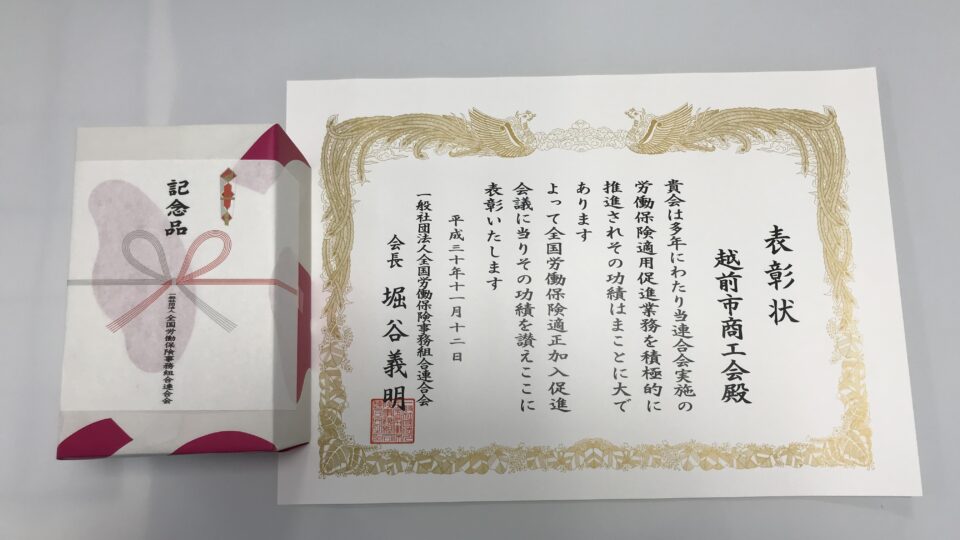 表彰状
越前市商工会殿
貴会は多年にわたり当連合会実施の
労働保険適用促進業務を積極的に
推進されその功績はまことに大で
あります
よって全国労働保険適正加入促進
会議に当りその功績を讃えここに
表彰いたします
平成三十年十一月十二日
一般社団法人全国労働保険事務組合連合会
会長 堀谷義明
記念品
一般社団法人 全国労働保険事務組合連合会